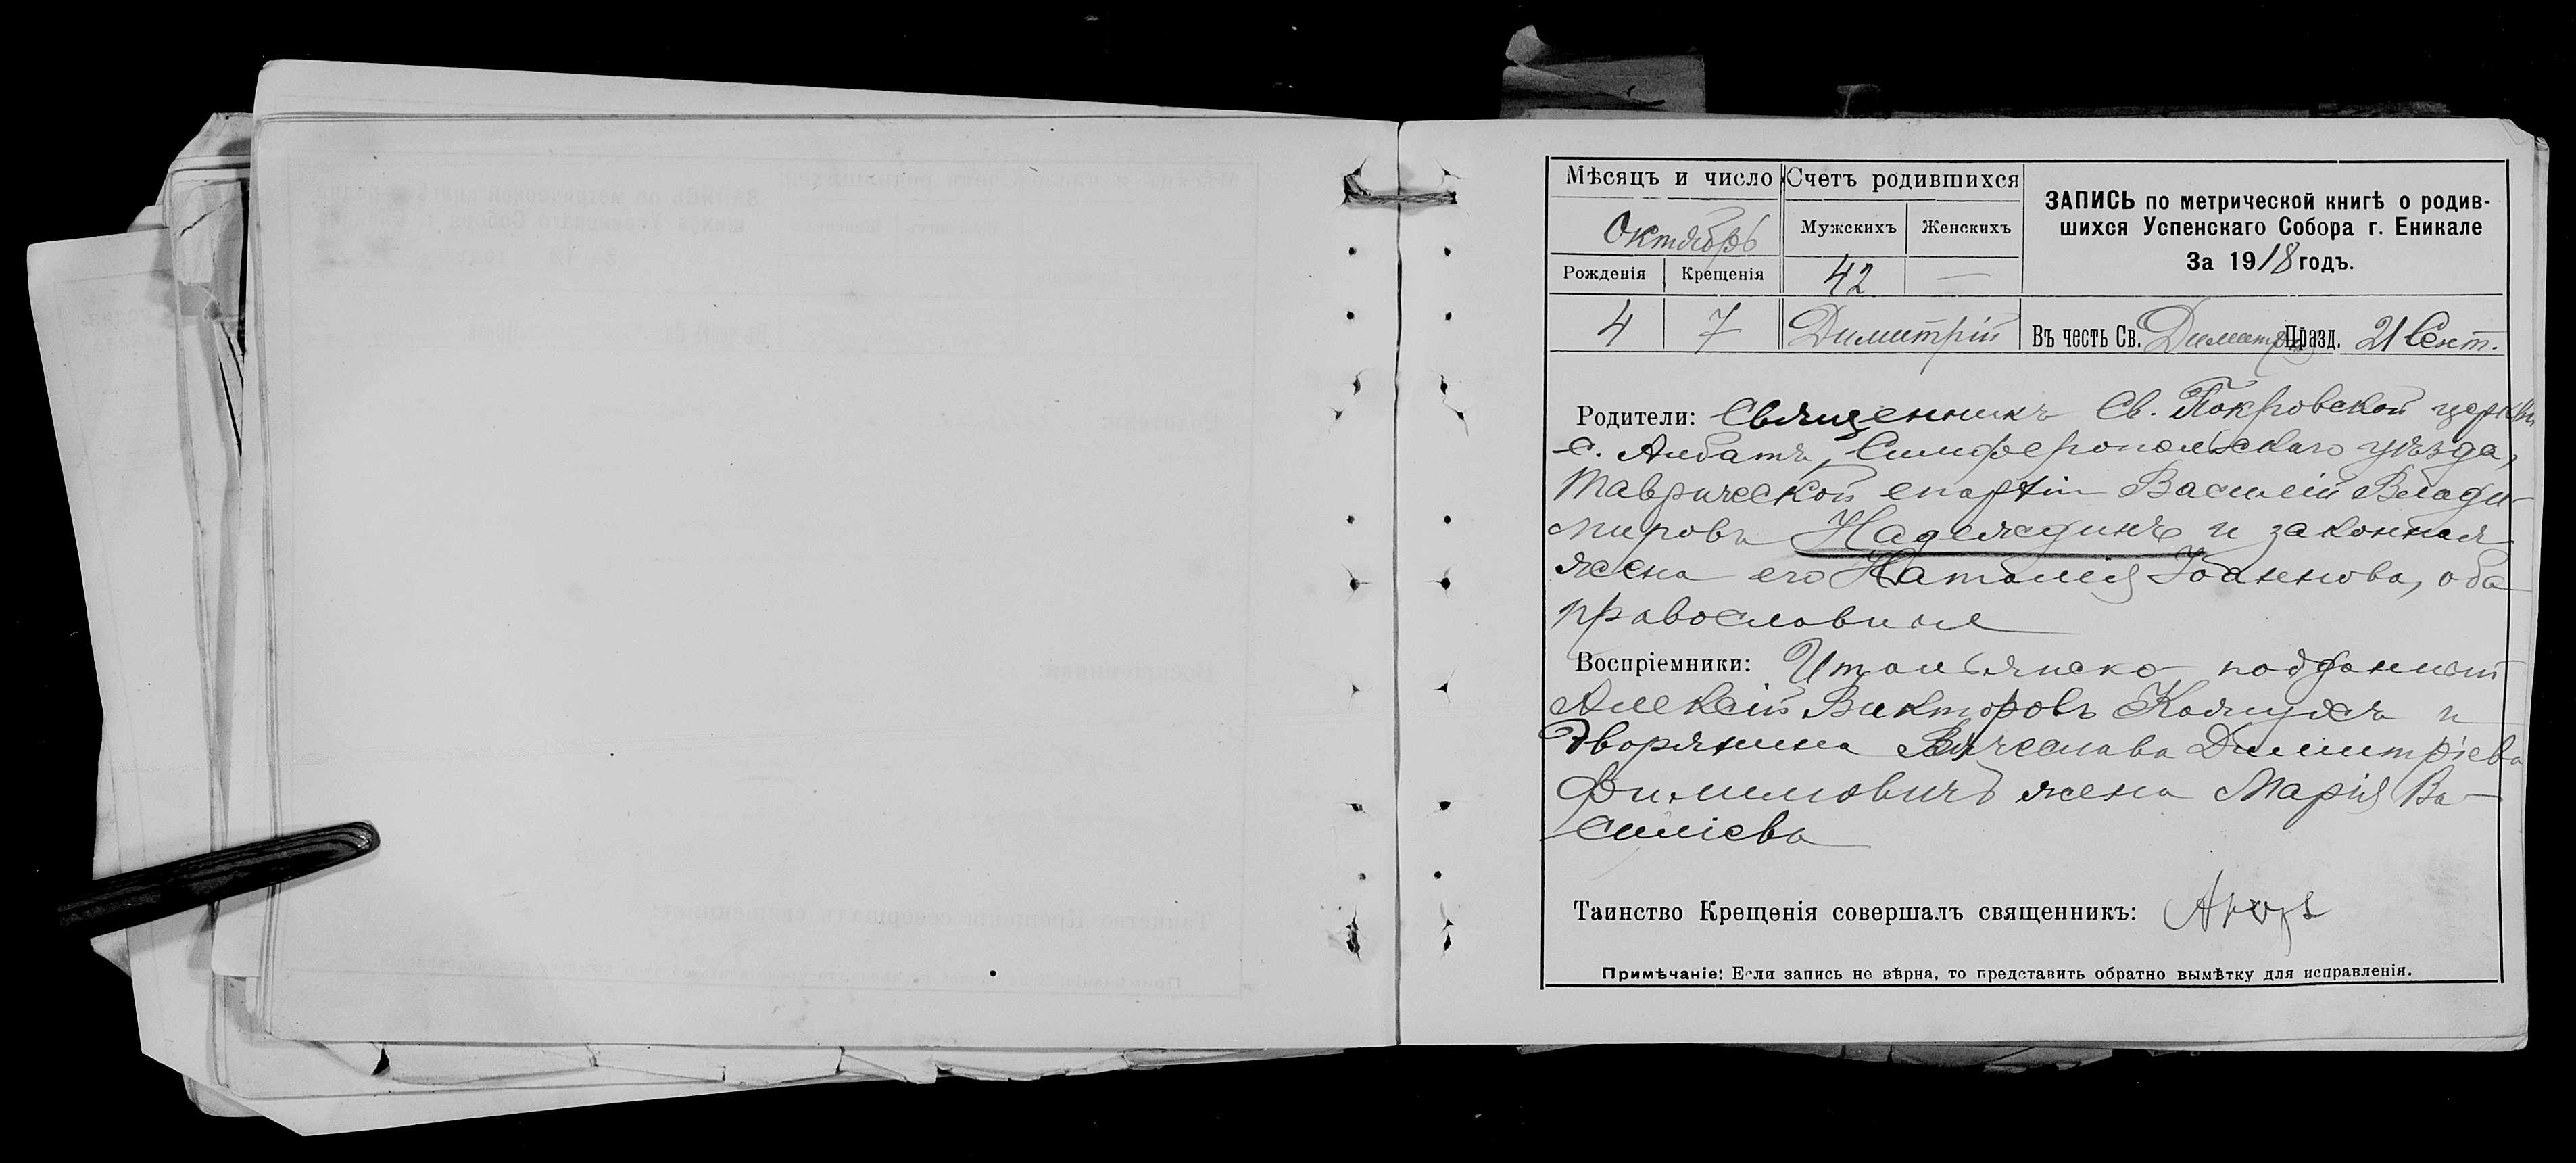 Мѣсяцъ и число
Счетъ родившихся
ЗАПИСЬ по метрической книгѣ о родив-
шихся Успенскаго Собора г. Еникале
За 1918 годъ.
Октябрь
Мужскихъ
Женскихъ
Рожденія
Крещенія
42
—
4
7
Димитрій
Въ честь Св. Димитрія Празд. 21 Сент.
Родители: Священникъ Св. Покровской церкви
с. Албатъ, Симферопольскаго уѣзда,
Таврической епархіи Василій Влади-
мировъ Надеждинъ и законная
жена его Наталія Іоаннова, оба
православные
Воспріемники: Итальянско-подданный
Алексій Викторовъ и
Дворянина Вячеслава Димитріева
жена Марія Ва-
силіева
Таинство Крещенія совершалъ священникъ:
Примѣчаніе: Если запись не вѣрна, то представить обратно вымѣтку для исправленія.